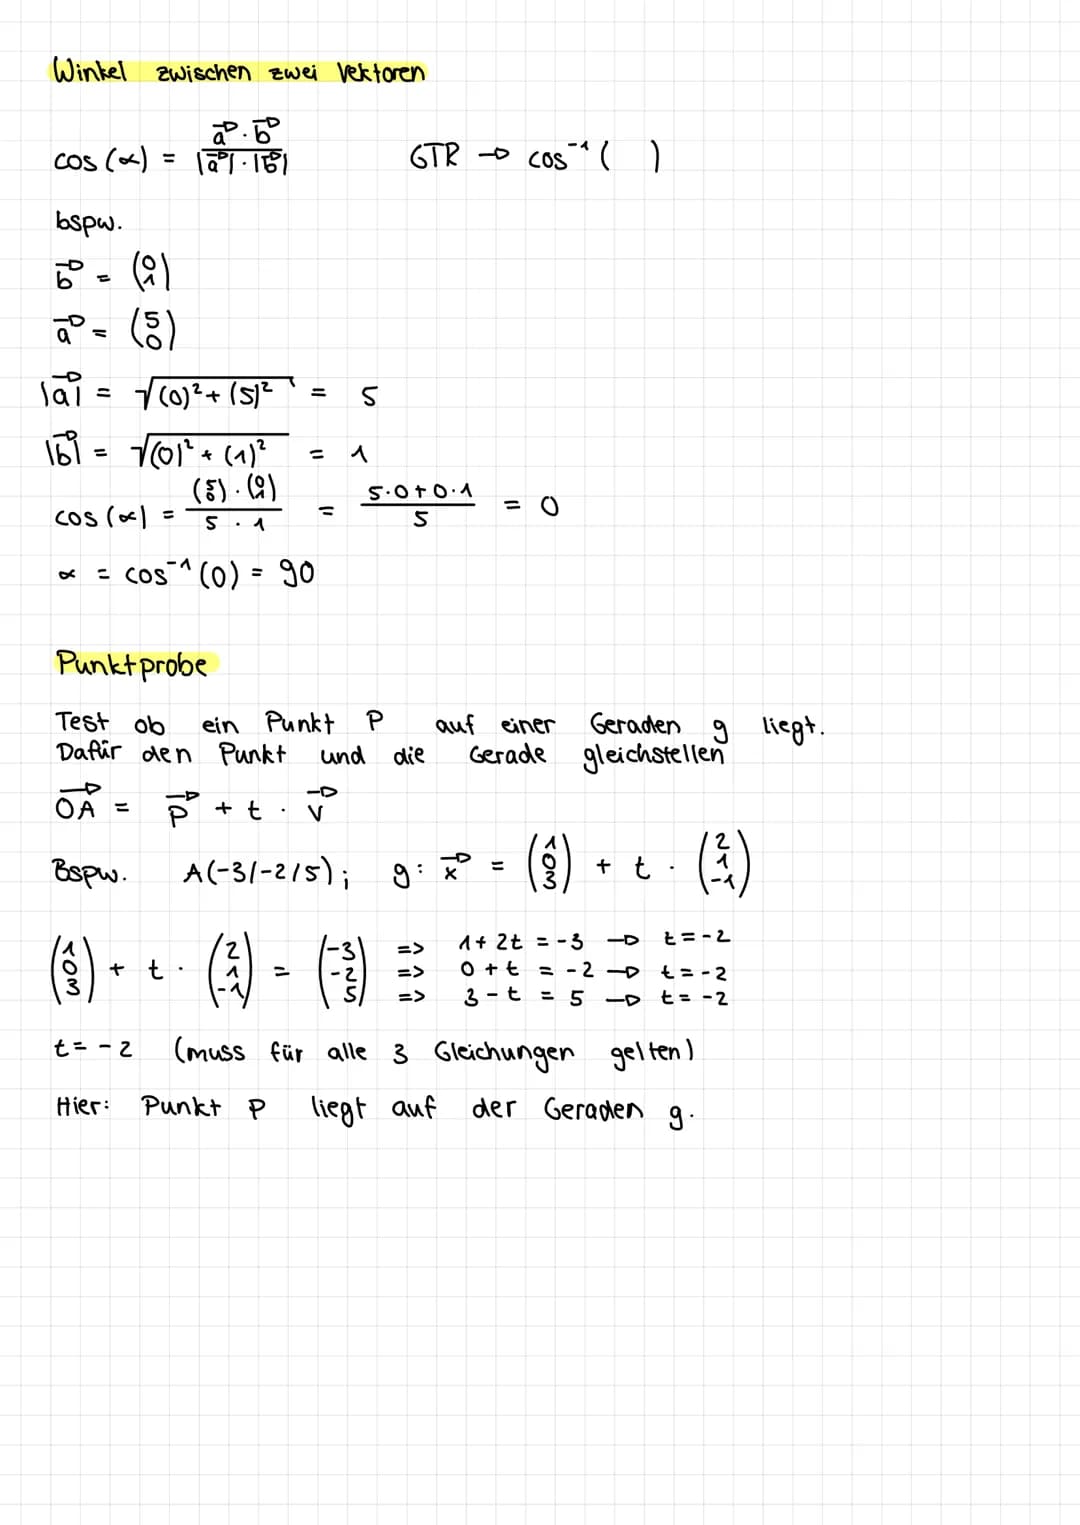 Winkel zwischen zwei Vektoren
cos(α) = (a⃗ · b⃗)/(|a⃗| · |b⃗|) GTR → cos⁻¹( )
bspw.
b⃗ = (0 1)
a⃗ = (5 0)
|a⃗| = √((0)² + (5)²) = 5
|b⃗| = √((0)² + (1)²) = 1
cos(α) = ((5 0) · (0 1))/(5 · 1) = (5·0+0·1)/5 = 0
α = cos⁻¹(0) = 90
Punktprobe
Test ob ein Punkt P auf einer Geraden g liegt.
Dafür den Punkt und die Gerade gleichstellen
O⃗A = p⃗ + t · v⃗
Bspw. A(-3/-2/5); g: x⃗ = (1 0 3) + t · (2 1 -1)
(1 0 3) + t · (2 1 -1) = (-3 -2 5) => 1+2t = -3 → t=-2
=> 0+t = -2 → t=-2
=> 3-t = 5 → t=-2
t=-2 (muss für alle 3 Gleichungen gelten)
Hier: Punkt P liegt auf der Geraden g.